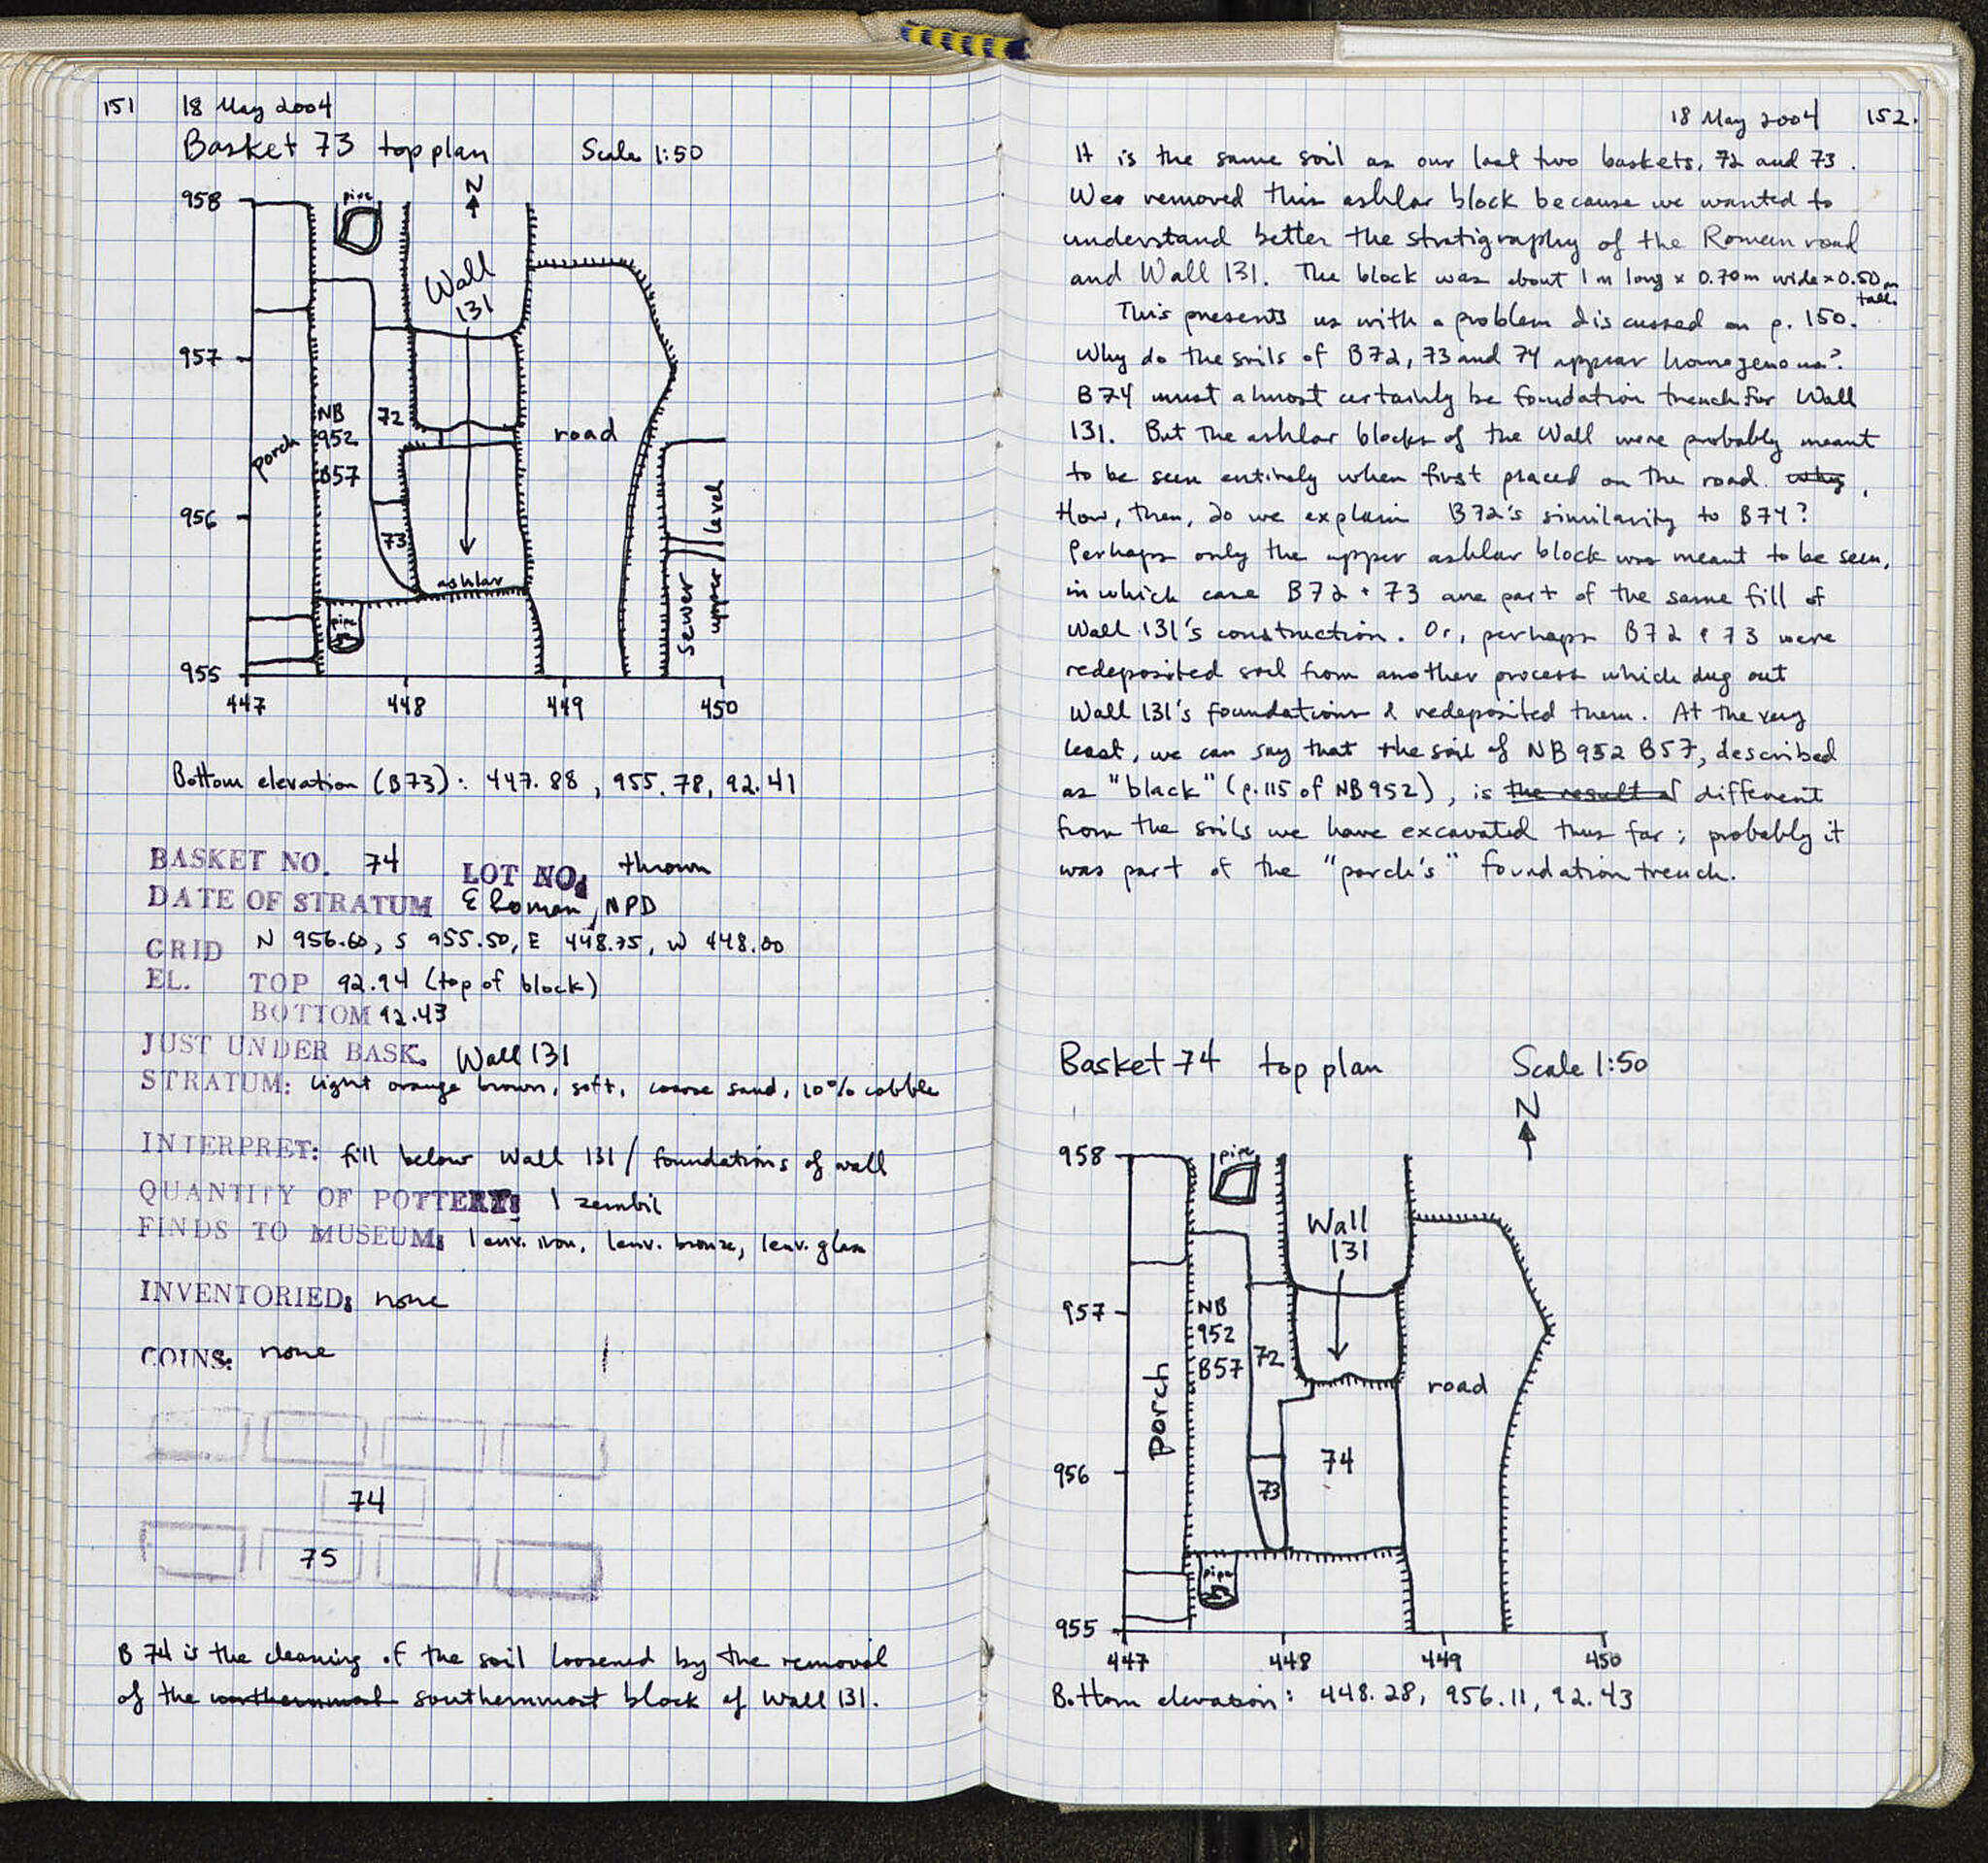 151 18 May 2004
Basket 73 top plan Scale 1:50
N
958
pipe
Wall
131
957
NB
952
B57
72
porch
road
956
73
ashlar
pipe
sewer
upper
level
955
447 448 449 450
Bottom elevation (B73): 447.88, 955.78, 92.41
BASKET NO. 74 LOT NO. thrown
DATE OF STRATUM E Roman, NPD
GRID N 956.60, S 955.50, E 448.75, W 448.00
EL. TOP 92.94 (top of block)
BOTTOM 92.43
JUST UNDER BASK. Wall 131
STRATUM: light orange brown, soft, coarse sand, 10% cobble
INTERPRET: fill below Wall 131 / foundations of wall
QUANTITY OF POTTERY: 1 zembil
FINDS TO MUSEUM: 1 env. iron, 1 env. bronze, 1 env. glass
INVENTORIED: none
COINS: none
74
75
B 74 is the cleaning of the soil loosened by the removal
of the northernmost southernmost block of Wall 131.
18 May 2004 152.
It is the same soil as our last two baskets, 72 and 73.
We removed this ashlar block because we wanted to
understand better the stratigraphy of the Roman road
and Wall 131. The block was about 1 m long x 0.70m wide x 0.50 m
tall.
This presents us with a problem discussed on p. 150.
Why do the soils of B72, 73 and 74 appear homogenous?
B74 must almost certainly be foundation trench for Wall
131. But the ashlar blocks of the Wall were probably meant
to be seen entirely when first placed on the road. why
How, then, do we explain B72's similarity to B74?
Perhaps only the upper ashlar block was meant to be seen,
in which case B72 + 73 are part of the same fill of
Wall 131's construction. Or, perhaps B72 & 73 were
redeposited soil from another process which dug out
Wall 131's foundations & redeposited them. At the very
least, we can say that the soil of NB 952 B57, described
as "black" (p. 115 of NB 952), is the result of different
from the soils we have excavated thus far; probably it
was part of the "porch's" foundation trench.
Basket 74 top plan Scale 1:50
N
958
pipe
Wall
131
957
NB
952
B57
72
porch
road
956
74
73
pipe
955
447 448 449 450
Bottom elevation: 448.28, 956.11, 92.43